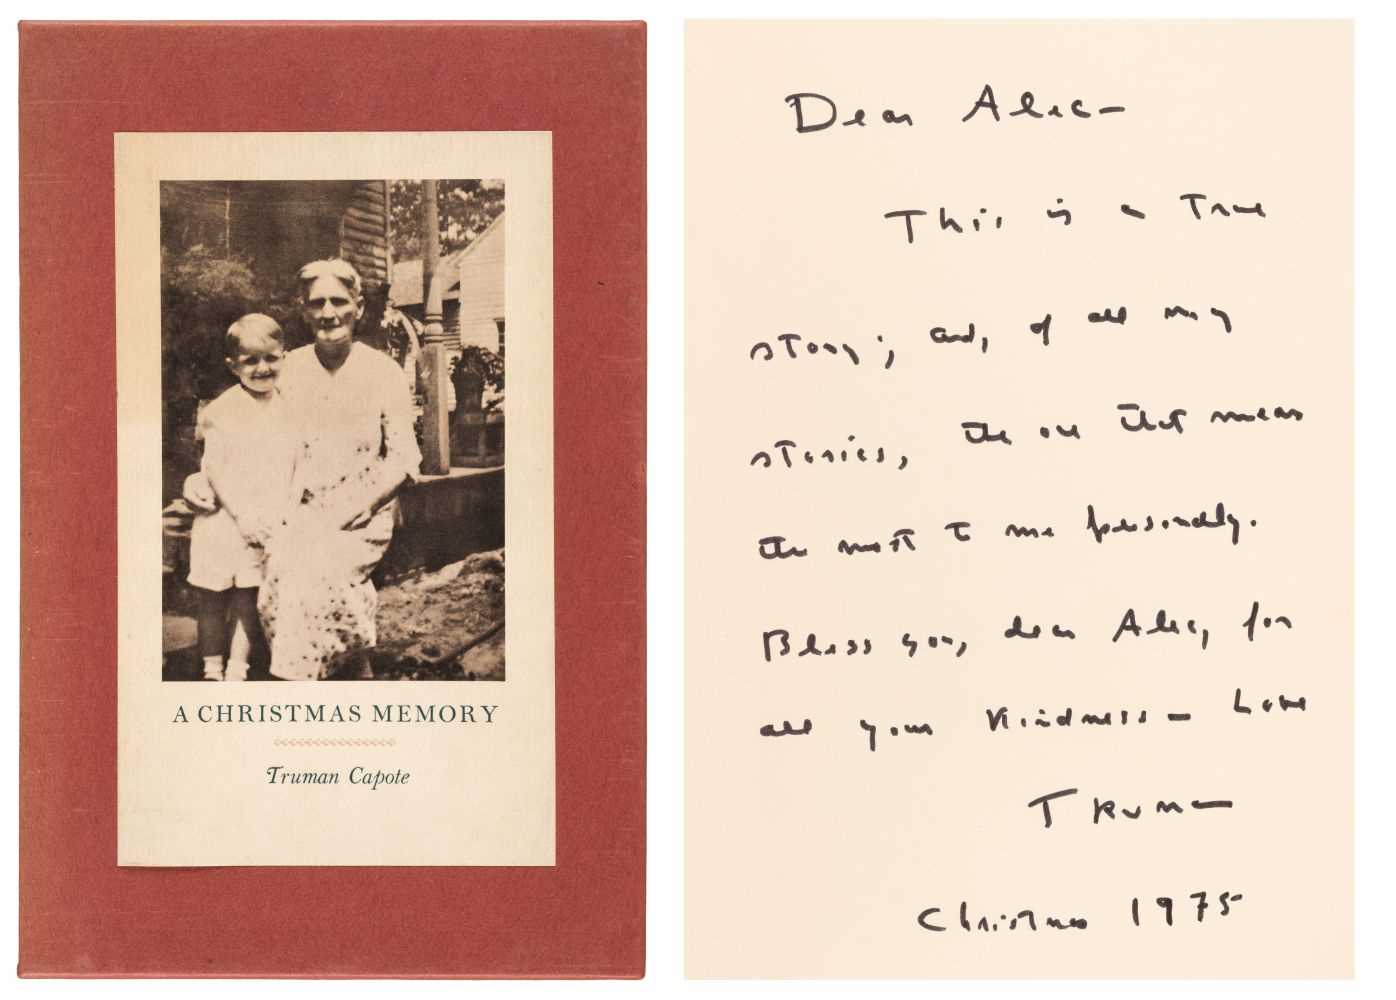 A CHRISTMAS MEMORY
Truman Capote
Dear Alec—
This is a True
story; and, of all my
stories, the one that means
the most to me personally.
Bless you, dear Alec, for
all your kindness — Love
Truman
Christmas 1975